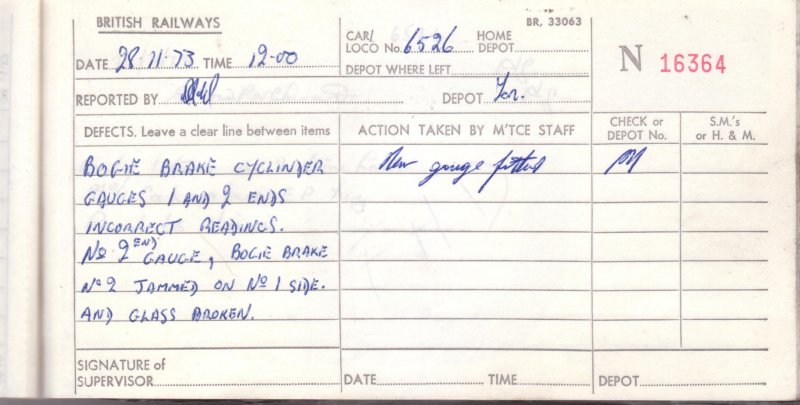 BRITISH RAILWAYS
BR, 33063
DATE 28·11·73 TIME 12-00
CAR/ LOCO No. 6526 HOME DEPOT
DEPOT WHERE LEFT
N 16364
REPORTED BY DEPOT
DEFECTS. Leave a clear line between items
ACTION TAKEN BY M'TCE STAFF
CHECK or DEPOT No.
S.M.'s or H. & M.
BOGIE BRAKE CYCLINDER
New gauge fitted
GAUGES 1 AND 2 ENDS
INCORRECT READINGS.
No 2 END GAUGE, BOGIE BRAKE
No 2 JAMMED ON No 1 SIDE.
AND GLASS BROKEN.
SIGNATURE of SUPERVISOR
DATE TIME
DEPOT